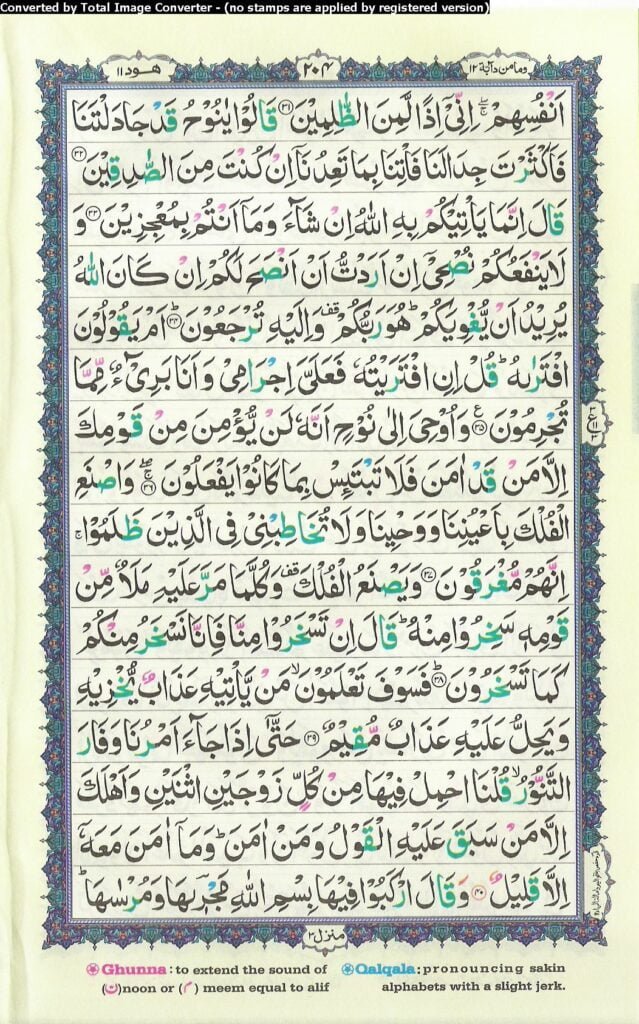 Converted by Total Image Converter - (no stamps are applied by registered version)
وما من دآبة ١٢
٢٠٤
هود ١١
اَنْفُسِهِمْ ۖۚ اِنِّىْٓ اِذًا لَّمِنَ الظّٰلِمِيْنَ ﴿۳۱﴾ قَالُوْا يٰنُوْحُ قَدْ جَادَلْتَنَا
فَاَكْثَرْتَ جِدَالَنَا فَاْتِنَا بِمَا تَعِدُنَاۤ اِنْ كُنْتَ مِنَ الصّٰدِقِيْنَ ﴿۳۲﴾
قَالَ اِنَّمَا يَاْتِيْكُمْ بِهِ اللّٰهُ اِنْ شَآءَ وَمَاۤ اَنْتُمْ بِمُعْجِزِيْنَ ﴿۳۳﴾ وَ
لَا يَنْفَعُكُمْ نُصْحِىْۤ اِنْ اَرَدْتُّ اَنْ اَنْصَحَ لَكُمْ اِنْ كَانَ اللّٰهُ
يُرِيْدُ اَنْ يُّغْوِيَكُمْ ؕ هُوَ رَبُّكُمْ قف وَاِلَيْهِ تُرْجَعُوْنَ ؕ﴿۳۴﴾ اَمْ يَقُوْلُوْنَ
افْتَرٰىهُ ؕ قُلْ اِنِ افْتَرَيْتُهٗ فَعَلَىَّ اِجْرَامِىْ وَاَنَا بَرِىْٓءٌ مِّمَّا
تُجْرِمُوْنَ ﴿۳۵﴾ ع وَاُوْحِىَ اِلٰى نُوْحٍ اَنَّهٗ لَنْ يُّؤْمِنَ مِنْ قَوْمِكَ
اِلَّا مَنْ قَدْ اٰمَنَ فَلَا تَبْتَئِسْ بِمَا كَانُوْا يَفْعَلُوْنَ ۖۚ﴿۳۶﴾ وَاصْنَعِ
الْفُلْكَ بِاَعْيُنِنَا وَوَحْيِنَا وَلَا تُخَاطِبْنِىْ فِى الَّذِيْنَ ظَلَمُوْا ۚ
اِنَّهُمْ مُّغْرَقُوْنَ ﴿۳۷﴾ وَيَصْنَعُ الْفُلْكَ قف وَكُلَّمَا مَرَّ عَلَيْهِ مَلَاٌ مِّنْ
قَوْمِهٖ سَخِرُوْا مِنْهُ ؕ قَالَ اِنْ تَسْخَرُوْا مِنَّا فَاِنَّا نَسْخَرُ مِنْكُمْ
كَمَا تَسْخَرُوْنَ ؕ﴿۳۸﴾ فَسَوْفَ تَعْلَمُوْنَ ۙ مَنْ يَّاْتِيْهِ عَذَابٌ يُّخْزِيْهِ
وَيَحِلُّ عَلَيْهِ عَذَابٌ مُّقِيْمٌ ﴿۳۹﴾ حَتّٰۤى اِذَا جَآءَ اَمْرُنَا وَفَارَ
التَّنُّوْرُ ۙ قُلْنَا احْمِلْ فِيْهَا مِنْ كُلٍّ زَوْجَيْنِ اثْنَيْنِ وَاَهْلَكَ
اِلَّا مَنْ سَبَقَ عَلَيْهِ الْقَوْلُ وَمَنْ اٰمَنَ ؕ وَمَاۤ اٰمَنَ مَعَهٗۤ
اِلَّا قَلِيْلٌ ﴿۴۰﴾ وَقَالَ ارْكَبُوْا فِيْهَا بِسْمِ اللّٰهِ مَجْرٖىهَا وَمُرْسٰىهَا ؕ
منزل ٣
Ghunna: to extend the sound of (ن)noon or (م) meem equal to alif
Qalqala: pronouncing sakin alphabets with a slight jerk.